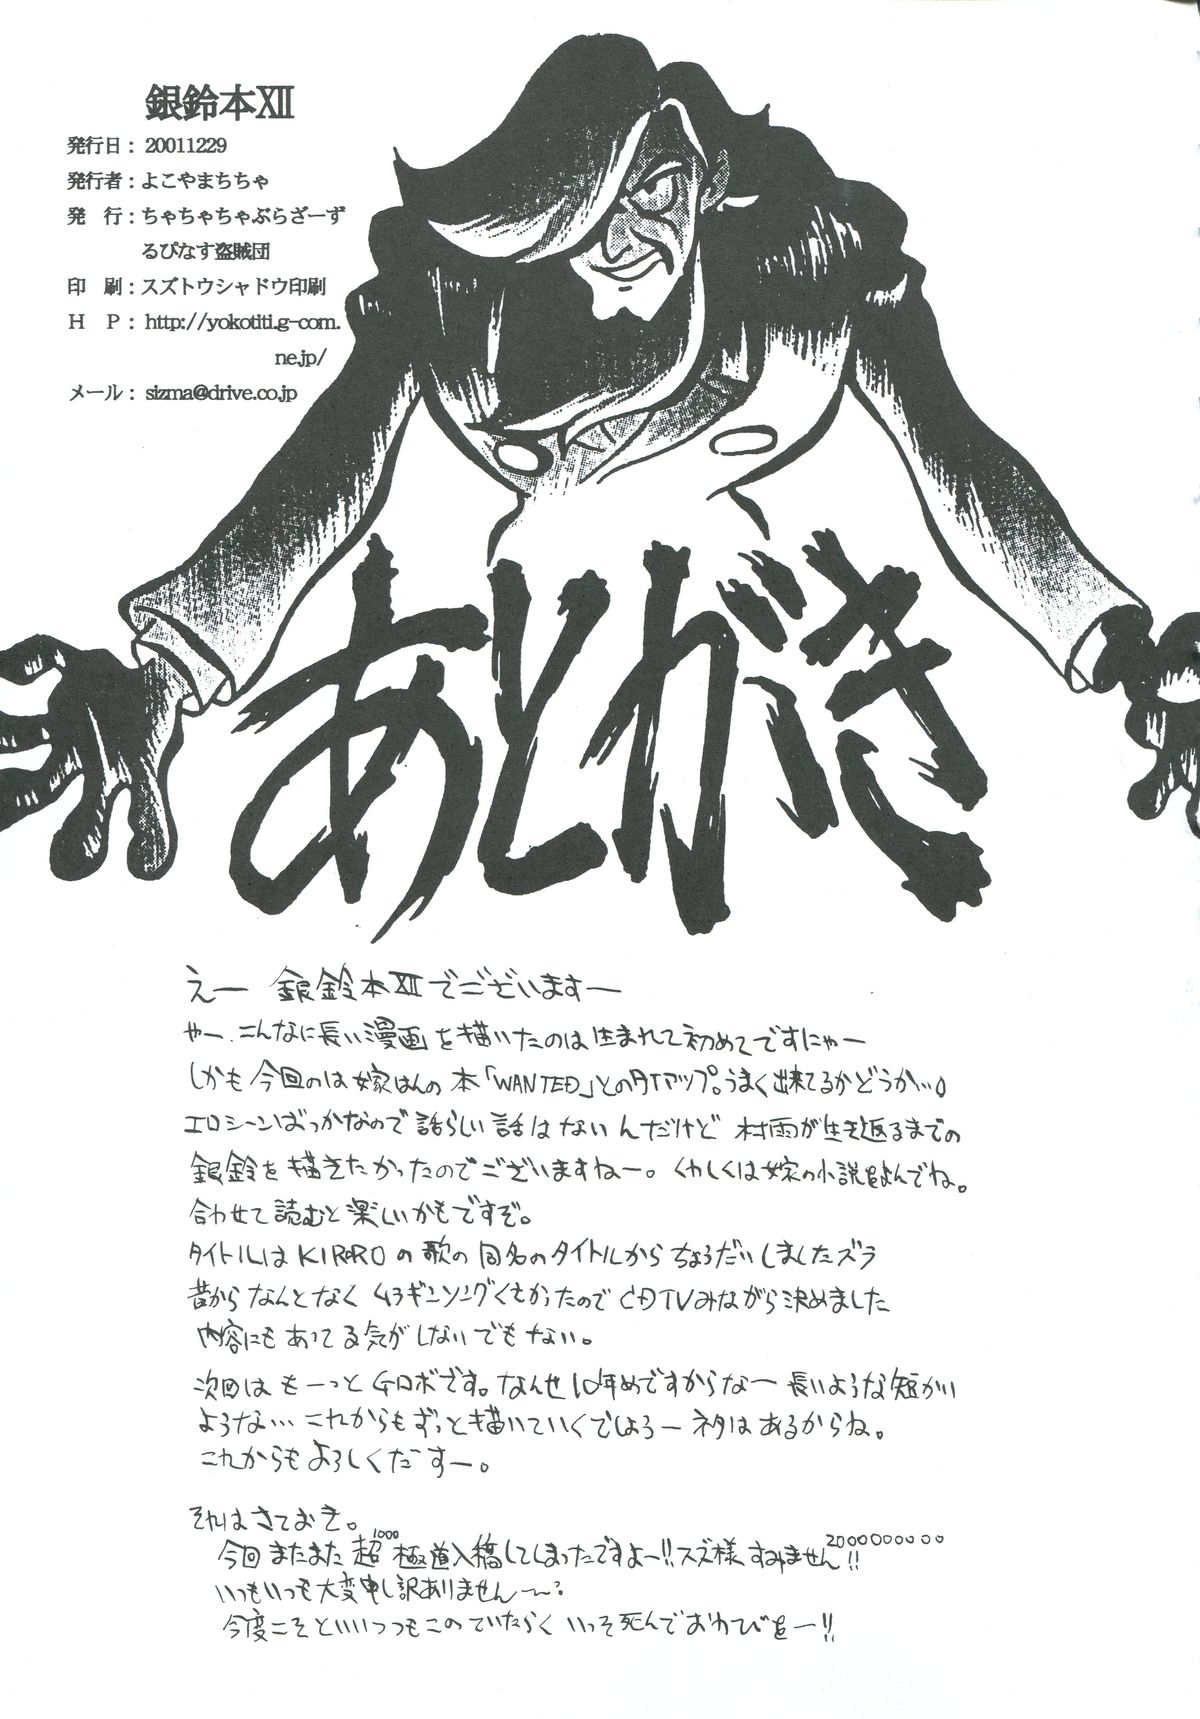 銀鈴本XII
発行日：20011229
発行者：よこやまちちゃ
発　行：ちゃちゃちゃぶらざーず
るぴなす盗賊団
印　刷：スズトウシャドウ印刷
Ｈ　Ｐ：http://yokotiti.g-com.
ne.jp/
メール：sizma@drive.co.jp
あとがき
えー 銀鈴本XIIでございますー
やー、こんなに長い漫画を描いたのは生まれて初めてですにゃー
しかも今回のは嫁はんの本「WANTED」とのタイアップ。うまく出来てるかどうか…。
エロシーンばっかなので話らしい話はないんだけど 村雨が生き返るまでの
銀鈴を描きたかったのでございますねー。くわしくは嫁の小説をよんでね。
合わせて読むと楽しいかもですぞ。
タイトルはKIROROの歌の同名のタイトルからちょうだいしましたズラ
昔からなんとなくムラギンソングくさかったのでCDTVみながら決めました
内容にもあってる気がしないでもない。
次回はもーっとGロボです。なんせ10年めですからなー 長いような短かい
ような… これからもずっと描いていくでしょうー ネタはあるからね。
これからもよろしくだすー。
それはさておき。
今回またまた超1000極道入稿してしまったですよー!!スズ様すみません2000000000!!
いつもいつも大変申し訳ありません〜
今度こそといいつつもこのていたらく いっそ死んでおわびをー!!